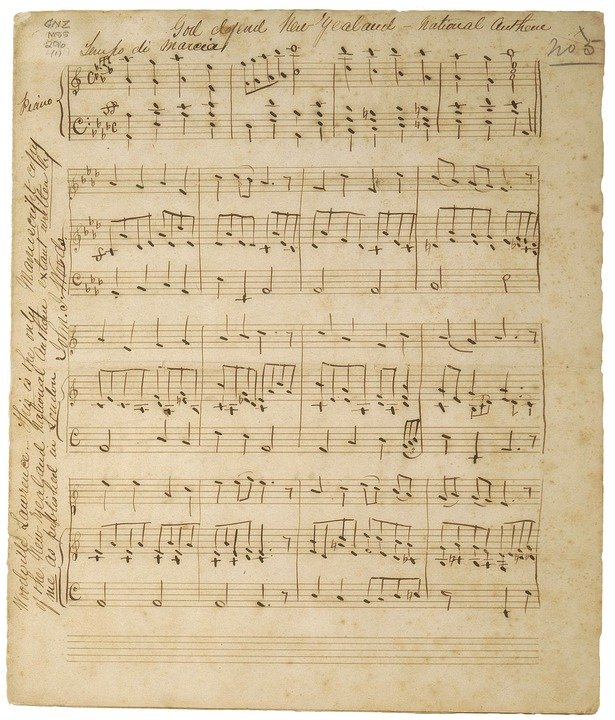 GNZ
MSS
2016
(1)
God defend New Zealand - National Anthem
no 5
Tempo di marcia
Piano
Woodville Lawrence. This is the only Manuscript copy
of the New Zealand National Anthem extant written by
me as published in London John J. Woods